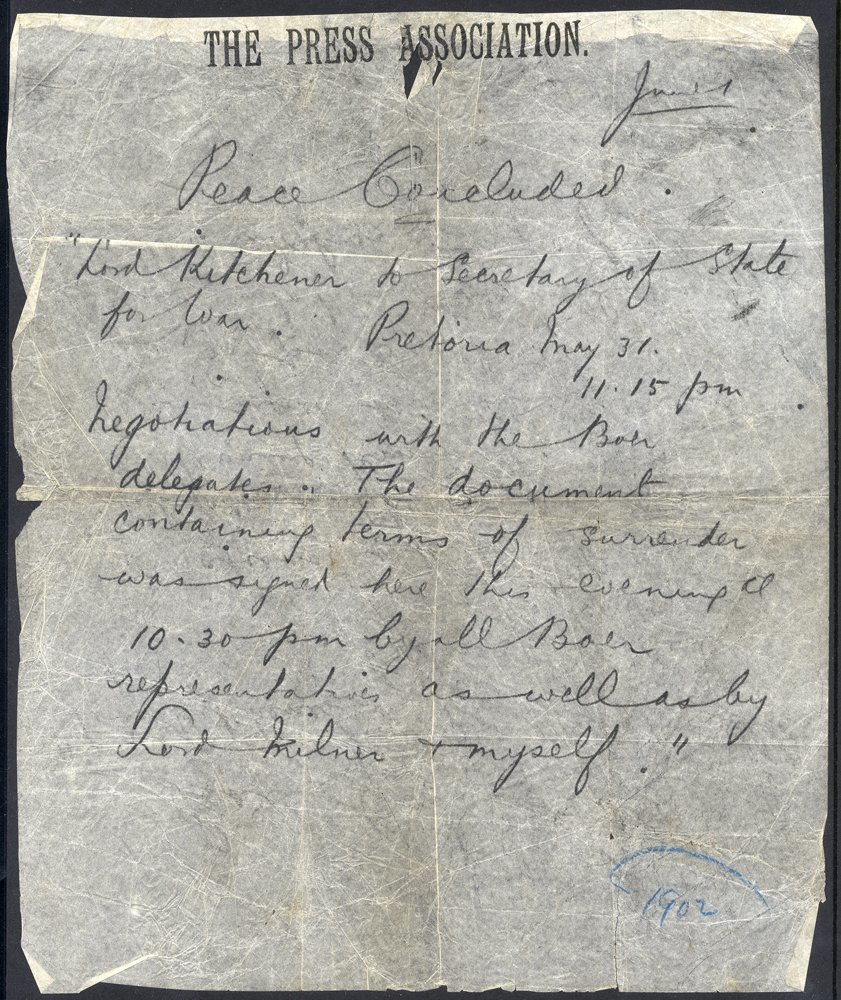 THE PRESS ASSOCIATION.
June 1
Peace Concluded.
"Lord Kitchener to Secretary of State
for War. Pretoria May 31.
11.15 pm
Negotiations with the Boer
delegates. The document
containing terms of surrender
was signed here this evening at
10.30 pm by all Boer
representatives as well as by
Lord Milner + myself."
1902